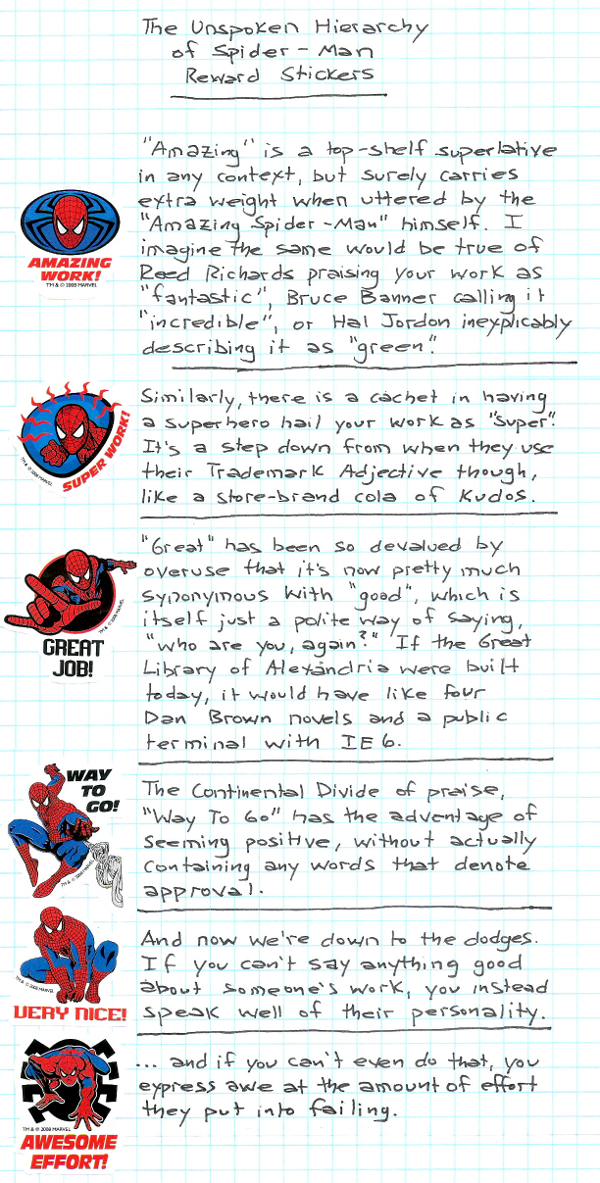 The Unspoken Hierarchy
of Spider-Man
Reward Stickers
"Amazing" is a top-shelf superlative
in any context, but surely carries
extra weight when uttered by the
"Amazing Spider-Man" himself. I
imagine the same would be true of
Reed Richards praising your work as
"fantastic", Bruce Banner calling it
"incredible", or Hal Jordon inexplicably
describing it as "green".
AMAZING
WORK!
TM & © 2008 MARVEL
Similarly, there is a cachet in having
a superhero hail your work as "super".
It's a step down from when they use
their Trademark Adjective though,
like a store-brand cola of Kudos.
SUPER WORK!
TM & © 2008 MARVEL
"Great" has been so devalued by
overuse that it's now pretty much
synonymous with "good", which is
itself just a polite way of saying,
"who are you, again?" If the Great
Library of Alexandria were built
today, it would have like four
Dan Brown novels and a public
terminal with IE6.
GREAT
JOB!
TM & © 2008 MARVEL
WAY
TO
GO!
TM & © 2008 MARVEL
The Continental Divide of praise,
"Way To Go" has the advantage of
seeming positive, without actually
containing any words that denote
approval.
And now we're down to the dodges.
If you can't say anything good
about someone's work, you instead
speak well of their personality.
TM & © 2008 MARVEL
VERY NICE!
... and if you can't even do that, you
express awe at the amount of effort
they put into failing.
TM & © 2008 MARVEL
AWESOME
EFFORT!